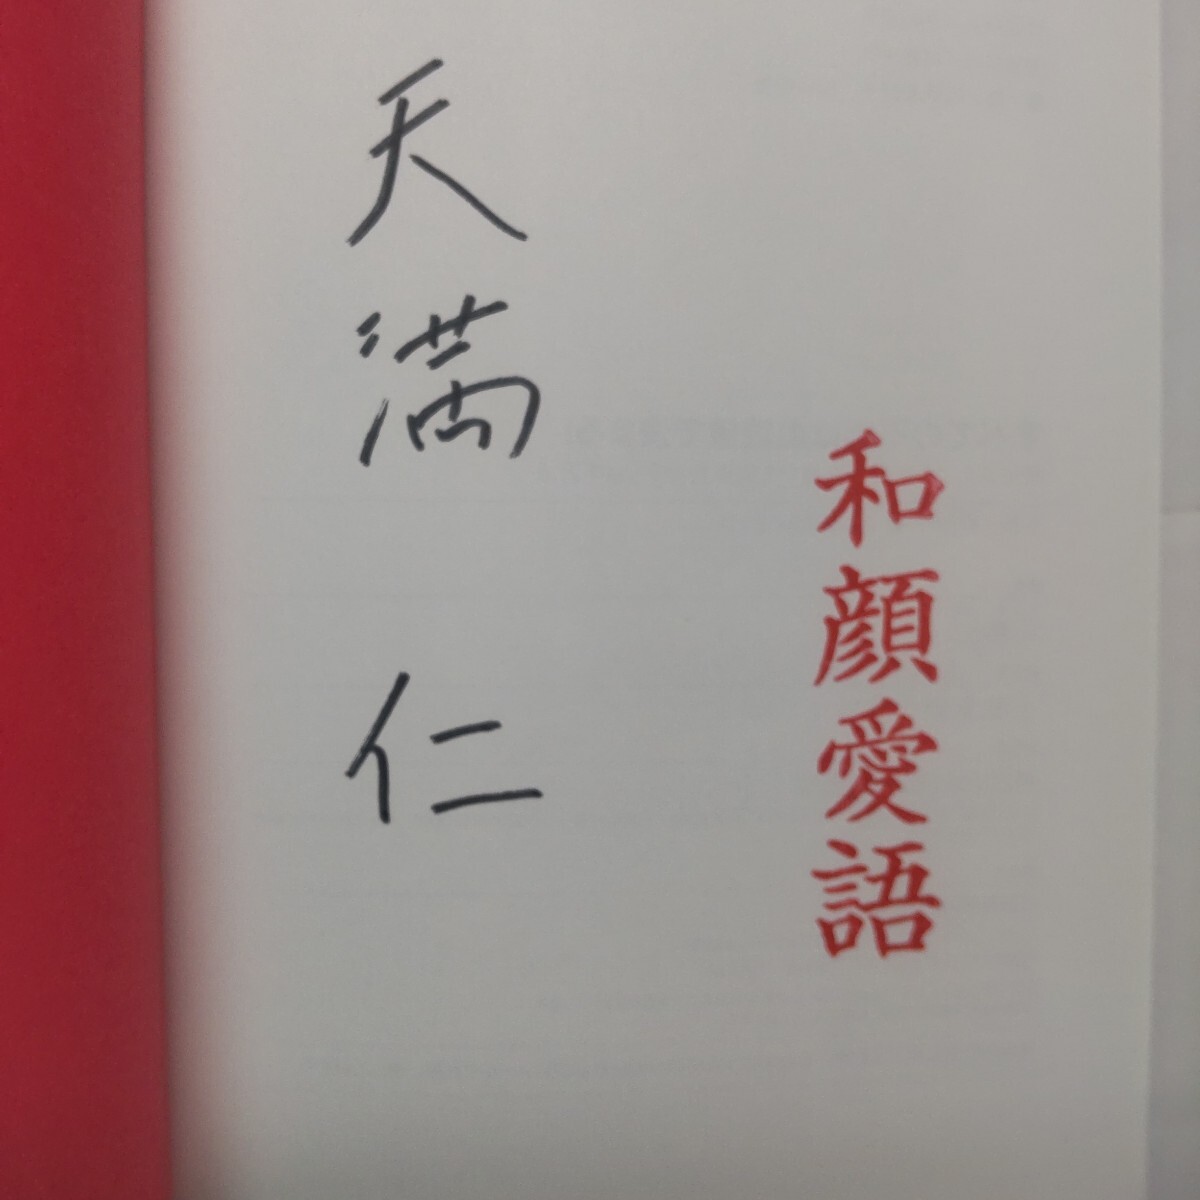 和顔愛語
天満 仁